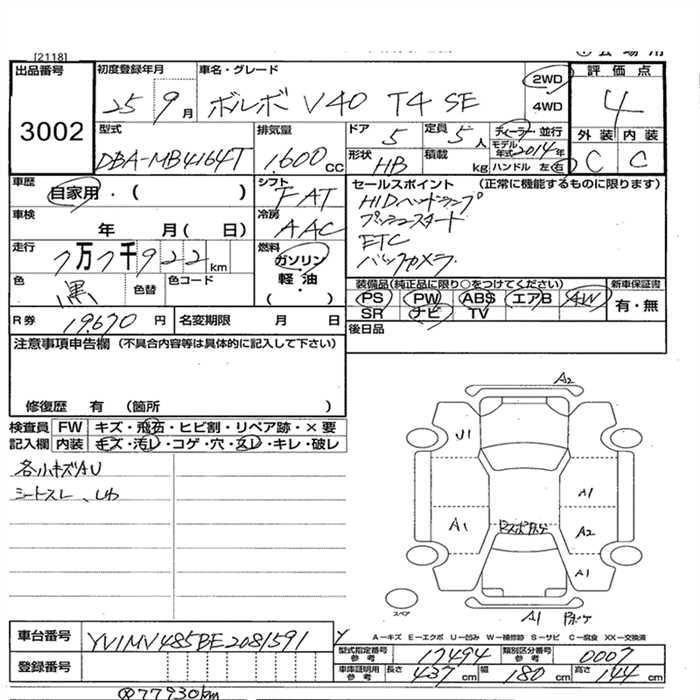 [2118]
出品番号 3002
初度登録年月 25 9月
車名・グレード ボルボ V40 T4 SE
2WD
4WD
評価点 4
外装 内装
C C
型式 DBA-MB4164T
排気量 1.600 CC
ドア 5
定員 5人
ディーラー 並行
モデル年式 2014年
形状 HB
積載 kg
ハンドル 左 右
車歴 自家用・( )
シフト FAT
セールスポイント (正常に機能するものに限ります)
HIDヘッドランプ
プッシュスタート
ETC
バックカメラ
車検 年 月( 日)
冷房 AAC
走行 7万7千922km
燃料 ガソリン
軽油
・( )
色 黒 色替 色コード
装備品(純正品に限り○をつけてください)
新車保証書
PS PW ABS エアB AW
有・無
SR ナビ TV
R券 19.670円
名変期限 月 日
後日品
注意事項申告欄 (不具合内容等は具体的に記入して下さい)
修復歴 有 (箇所 )
検査員 FW キズ・飛石・ヒビ割・リペア跡・×要
記入欄 内装 キズ・汚レ・コゲ・穴・スレ・キレ・破レ
各小キズAU
シートスレ、しわ
A2
U1
A1
A1
A2
A1
A1
スペア
A-キズ E-エクボ U-凹み W-補修跡 S-サビ C-腐食 XX-交換済
車台番号 YV1MV485BE2081591
型式指定番号 参考 17494
類別区分番号 参考 0007
登録番号
車庫証明用 参考 長さ 437cm 幅 180cm 高さ 144cm
77930km